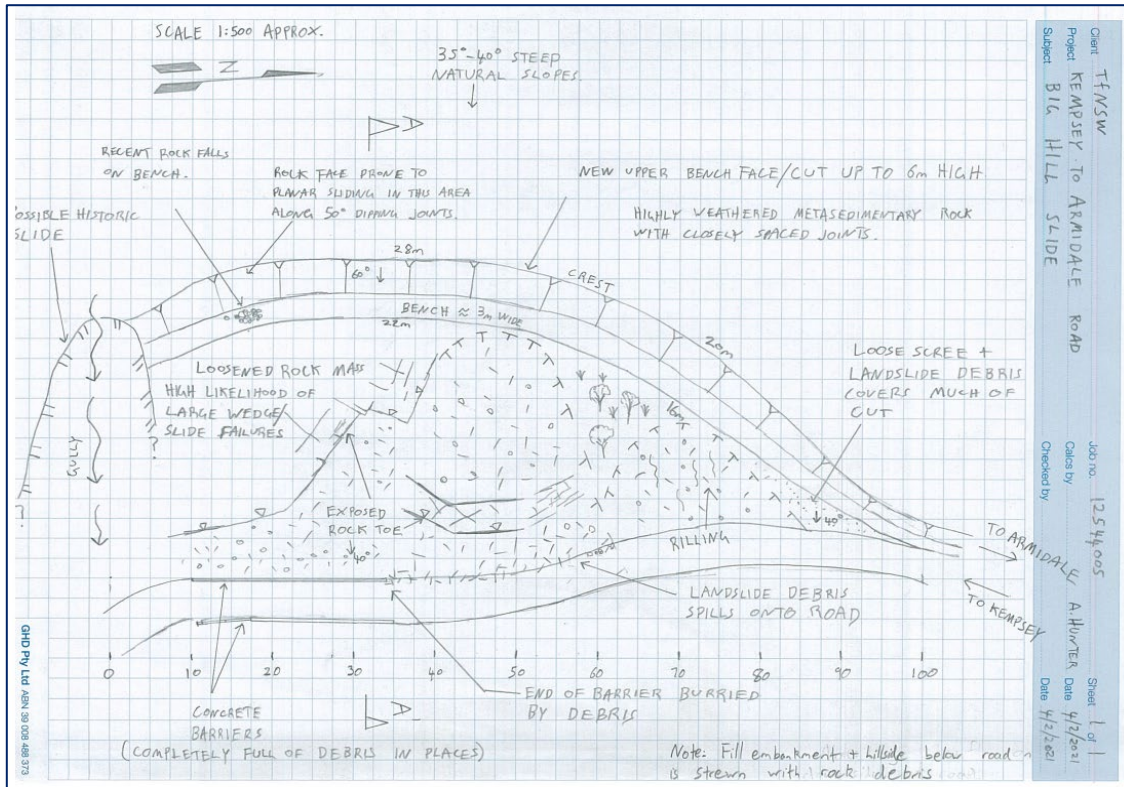 SCALE 1:500 APPROX.
N
35°-40° STEEP
NATURAL SLOPES
A
RECENT ROCK FALLS
ON BENCH.
ROCK FACE PRONE TO
PLANAR SLIDING IN THIS AREA
ALONG 50° DIPPING JOINTS.
NEW UPPER BENCH FACE/CUT UP TO 6m HIGH
HIGHLY WEATHERED METASEDIMENTARY ROCK
WITH CLOSELY SPACED JOINTS.
OSSIBLE HISTORIC
SLIDE
28m
60°
CREST
BENCH ≈ 3m WIDE
22m
20m
16m
LOOSENED ROCK MASS
HIGH LIKELIHOOD OF
LARGE WEDGE/
SLIDE FAILURES
LOOSE SCREE +
LANDSLIDE DEBRIS
COVERS MUCH OF
CUT
GULLY
?
?
EXPOSED
ROCK TOE
40°
40°
RILLING
TO ARMIDALE
TO KEMPSEY
LANDSLIDE DEBRIS
SPILLS ONTO ROAD
0 10 20 30 40 50 60 70 80 90 100
CONCRETE
BARRIERS
(COMPLETELY FULL OF DEBRIS IN PLACES)
A
END OF BARRIER BURRIED
BY DEBRIS
Note: Fill embankment + hillside below road
is strewn with rock debris
Client TfNSW
Project KEMPSEY TO ARMIDALE ROAD
Subject BIG HILL SLIDE
Job no. 12544005
Calcs by A.HUNTER Date 4/2/2021
Checked by Date 4/2/2021
Sheet 1 of 1
GHD Pty Ltd ABN 39 008 488 373